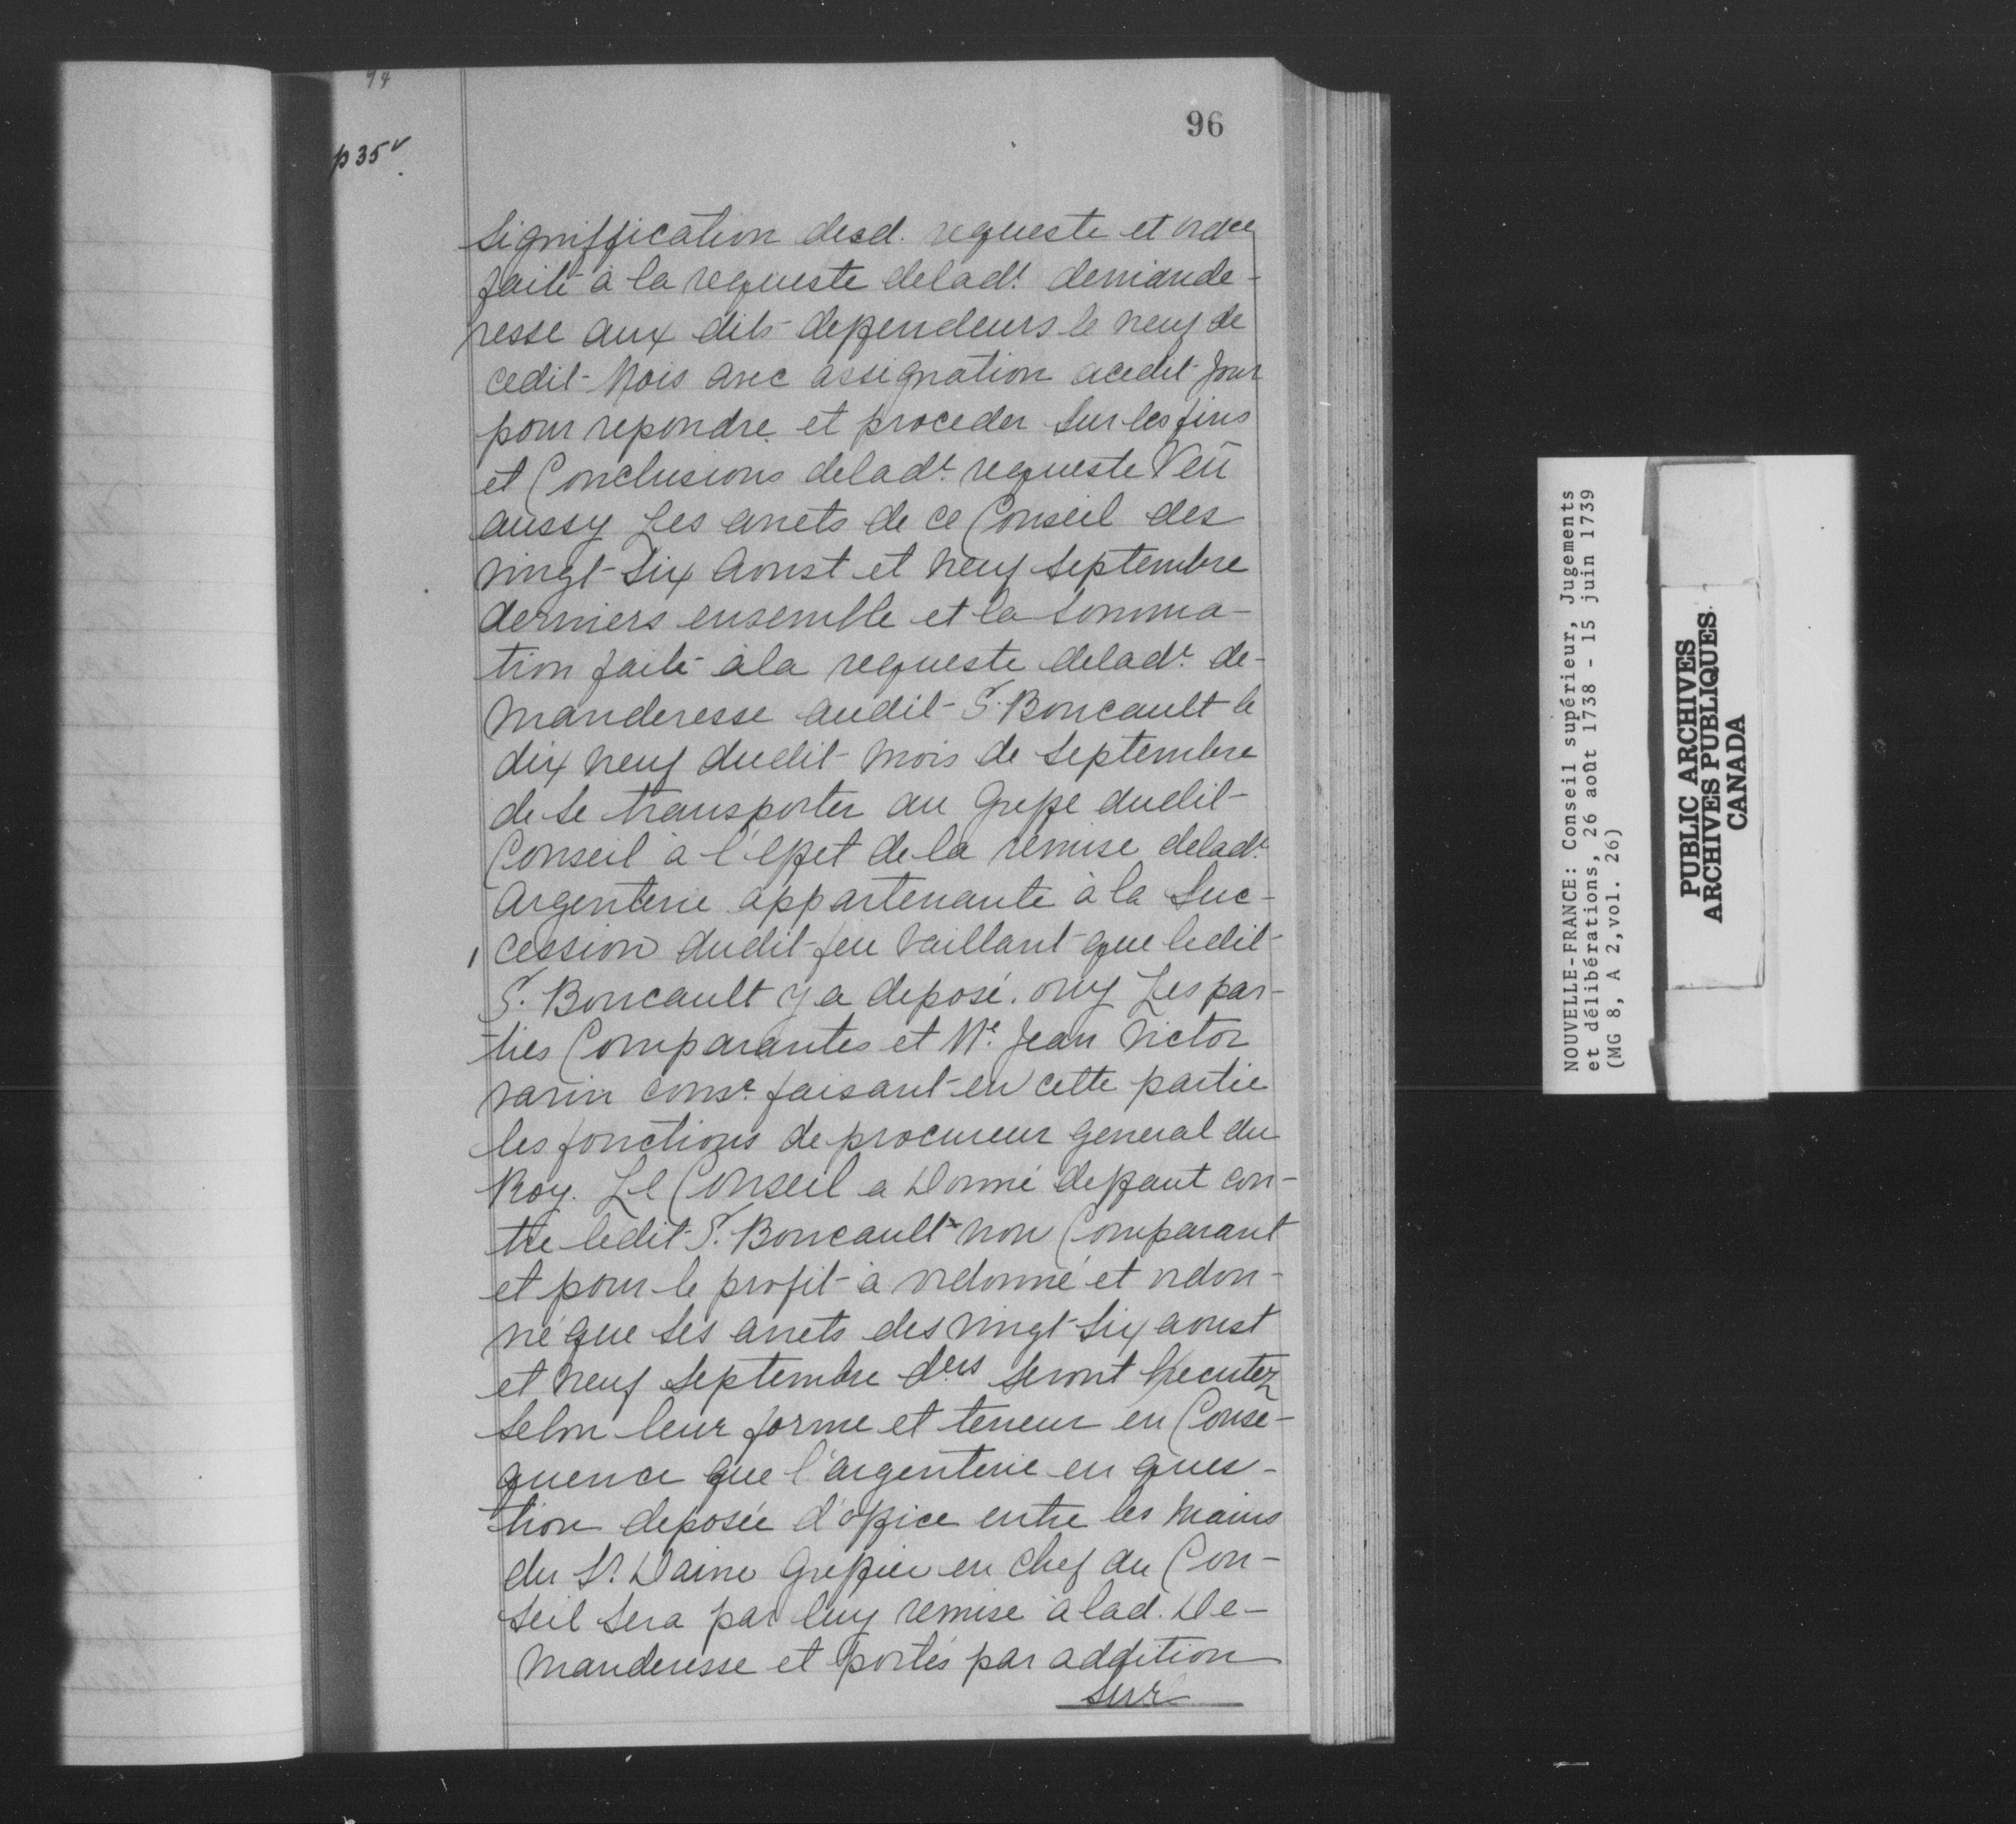 94
96
p 35 v.
signiffication desd. requeste et ordce
faite à la requeste delade. demande-
resse aux dits deffendeurs le neuf de
cedit Mois avec assignation acedit Jour
pour repondre et proceder sur les fins
et Conclusions delade. requeste Veü
aussy Les arrets de ce Conseil des
vingt-six Aoust et neuf septembre
derniers ensemble et la somma-
tion faite àla requeste delade. de-
manderesse audit Sr. Boucault le
dix neuf dudit mois de septembre
de se transporter au Greffe dudit
Conseil à l'effet de la remise delade.
Argenterie appartenante à la suc-
cession dudit feu Vaillant que ledit
Sr. Boucault y a deposé. ouy Les par-
ties Comparantes et Me. Jean Victor
varin consr. faisant en cette partie
les fonctions de procureur general du
Roy. Le Conseil a Donné deffaut con-
tre ledit Sr. Boucault non Comparant
et pour le profit à ordonné et ordon-
né que ses arrets des vingt-six aoust
et neuf septembre ders seront Executez
selon leur forme et teneur en Conse-
quence que l'argenterie en ques-
tion deposée d'office entre les mains
du Sr. Daine Greffier en chef du Con-
seil sera par luy remise à lad. De-
manderesse et portés par addition
sur
NOUVELLE-FRANCE: Conseil supérieur, Jugements
et délibérations, 26 août 1738 - 15 juin 1739
(MG 8, A 2, vol. 26)
PUBLIC ARCHIVES
ARCHIVES PUBLIQUES
CANADA